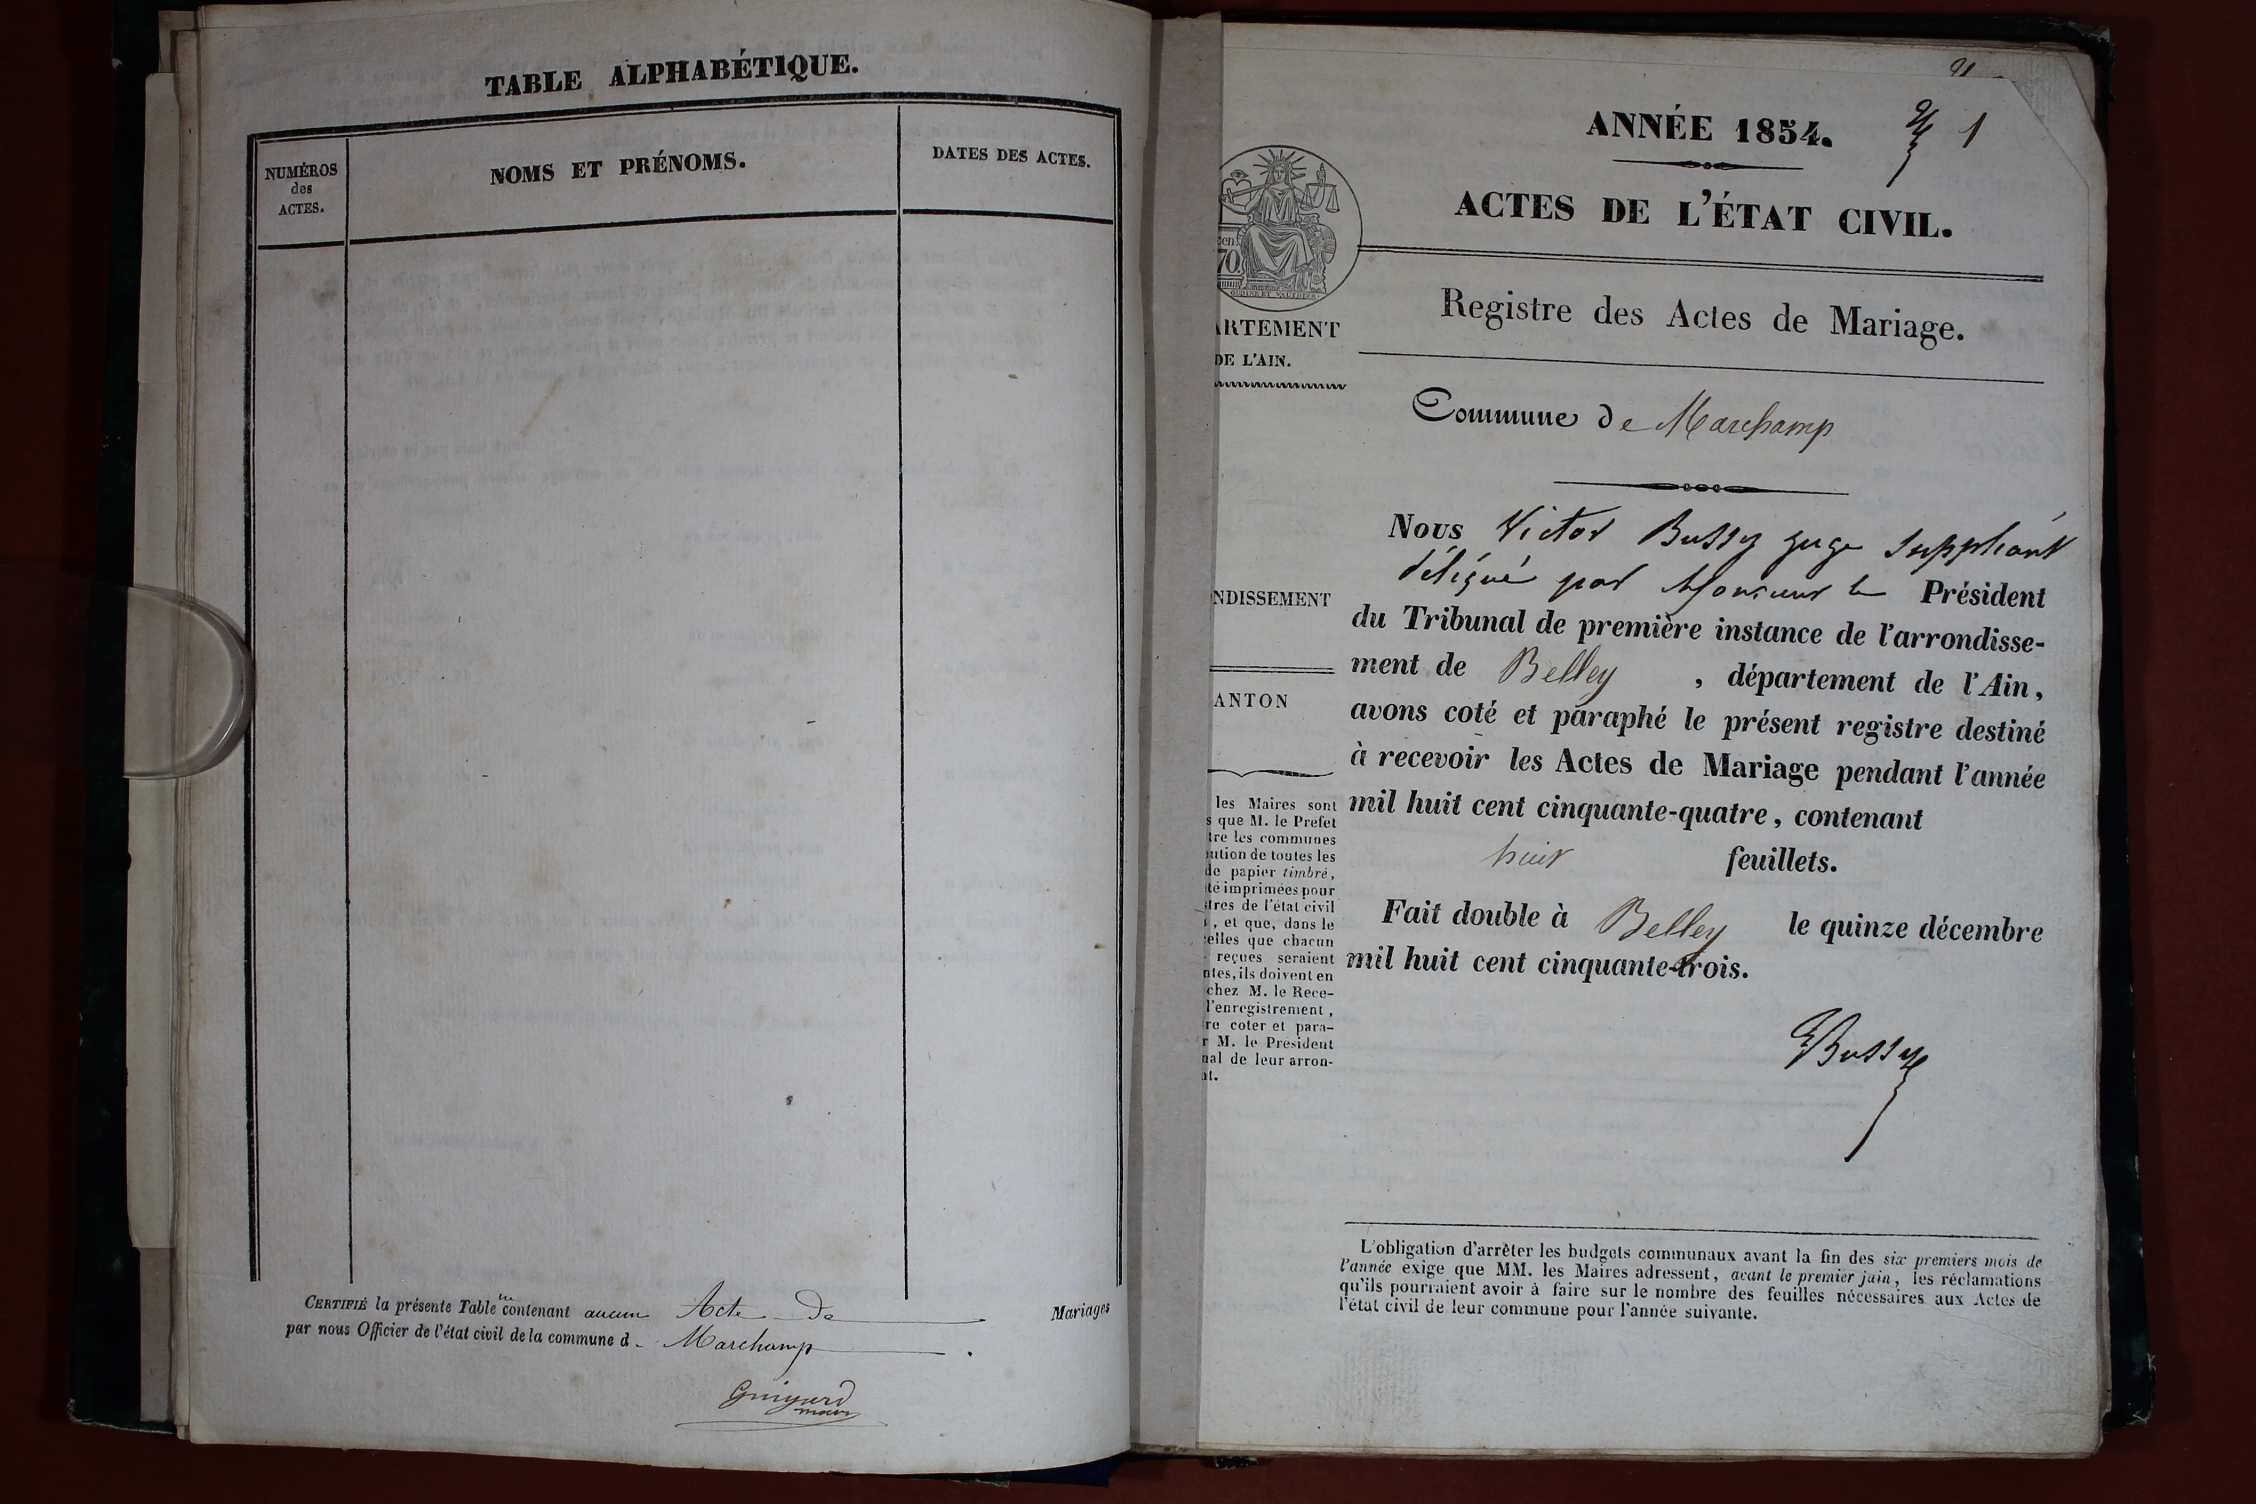 TABLE ALPHABÉTIQUE.
NUMÉROS
des
ACTES.
NOMS ET PRÉNOMS.
DATES DES ACTES.
CERTIFIÉ la présente Table contenant aucun Acte de Mariages
par nous Officier de l'état civil de la commune d Marchamp.
Guigard
maire
ANNÉE 1854.
1
ACTES DE L'ÉTAT CIVIL.
70
ARTEMENT
DE L'AIN.
Registre des Actes de Mariage.
Commune de Marchamp
Nous Victor Bussy juge suppléant
délégué par Monsieur le Président
du Tribunal de première instance de l'arrondisse-
ment de Belley, département de l'Ain,
avons coté et paraphé le présent registre destiné
à recevoir les Actes de Mariage pendant l'année
mil huit cent cinquante-quatre, contenant
huit feuillets.
Fait double à Belley le quinze décembre
mil huit cent cinquante-trois.
Bussy
NDISSEMENT
ANTON
les Maires sont
s que M. le Préfet
tre les communes
ution de toutes les
de papier timbré,
té imprimées pour
stres de l'état civil
, et que, dans le
elles que chacun
reçues seraient
ntes, ils doivent en
chez M. le Rece-
l'enregistrement,
re coter et para-
r M. le Président
nal de leur arron-
nt.
L'obligation d'arrêter les budgets communaux avant la fin des six premiers mois de
l'année exige que MM. les Maires adressent, avant le premier juin, les réclamations
qu'ils pourraient avoir à faire sur le nombre des feuilles nécessaires aux Actes de
l'état civil de leur commune pour l'année suivante.